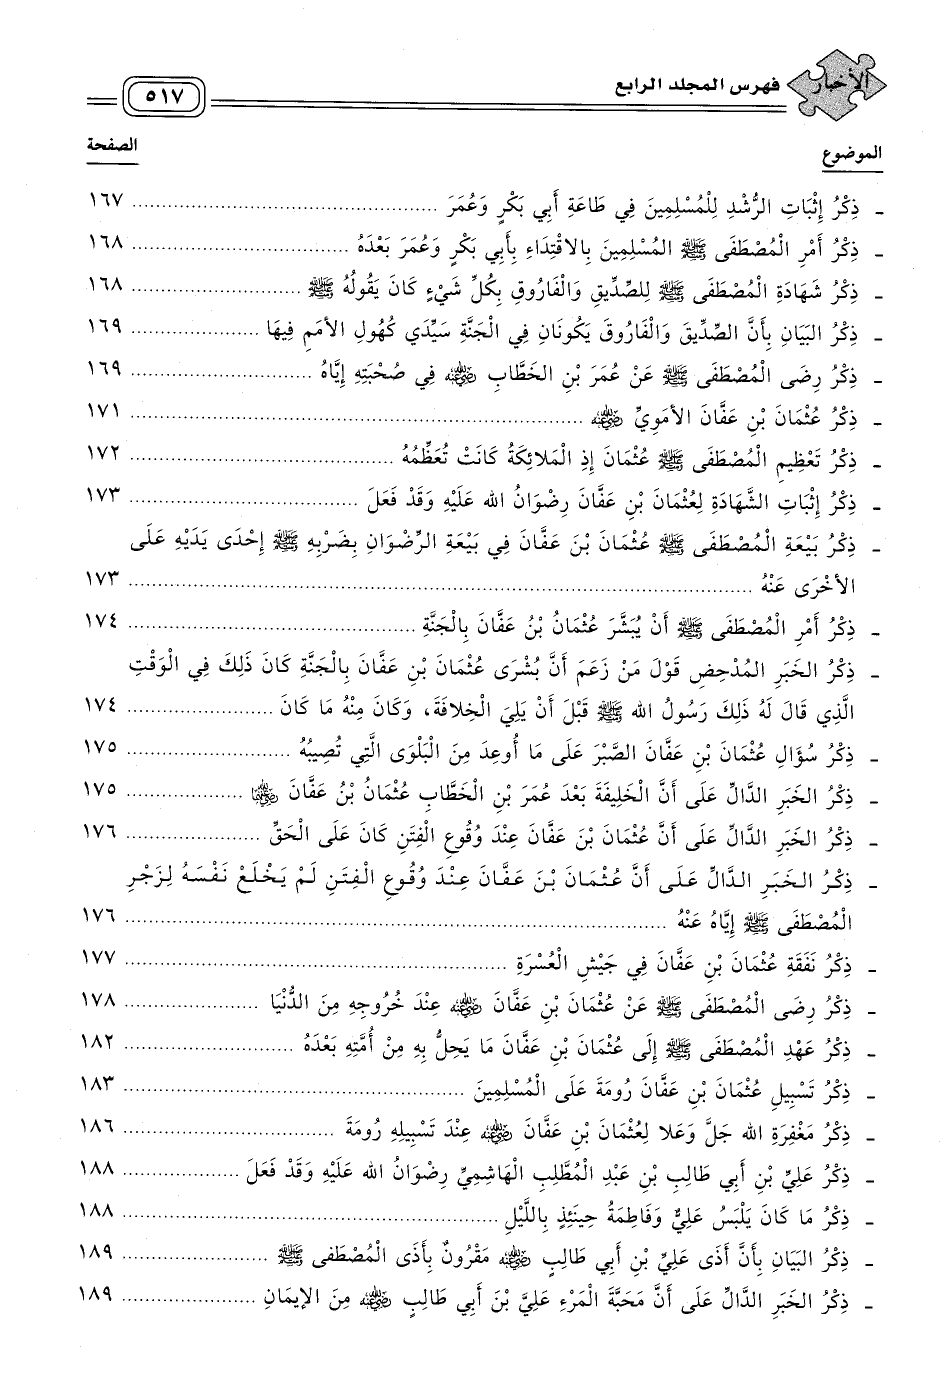 الأخبار
فهرس المجلد الرابع
٥١٧
الموضوع الصفحة
- ذِكْرُ إِثْبَاتِ الرُّشْدِ لِلْمُسْلِمِينَ فِي طَاعَةِ أَبِي بَكْرٍ وَعُمَرَ ........ ١٦٧
- ذِكْرُ أَمْرِ الْمُصْطَفَى ﷺ المُسْلِمِينَ بِالاقْتِدَاءِ بِأَبِي بَكْرٍ وَعُمَرَ بَعْدَهُ ........ ١٦٨
- ذِكْرُ شَهَادَةِ الْمُصْطَفَى ﷺ لِلصِّدِّيقِ وَالْفَارُوقِ بِكُلِّ شَيْءٍ كَانَ يَقُولُهُ ﷺ ........ ١٦٨
- ذِكْرُ البَيَانِ بِأَنَّ الصِّدِّيقَ وَالْفَارُوقَ يَكُونَانِ فِي الْجَنَّةِ سَيِّدَيْ كُهُولِ الأمَمِ فِيهَا ........ ١٦٩
- ذِكْرُ رِضَى الْمُصْطَفَى ﷺ عَنْ عُمَرَ بْنِ الخَطَّابِ رضي الله عنه فِي صُحْبَتِهِ إِيَّاهُ ........ ١٦٩
- ذِكْرُ عُثْمَانَ بْنِ عَفَّانَ الأمَوِيِّ رضي الله عنه ........ ١٧١
- ذِكْرُ تَعْظِيمِ الْمُصْطَفَى ﷺ عُثْمَانَ إِذِ الْمَلائِكَةُ كَانَتْ تُعَظِّمُهُ ........ ١٧٢
- ذِكْرُ إِثْبَاتِ الشَّهَادَةِ لِعُثْمَانَ بْنِ عَفَّانَ رِضْوَانُ الله عَلَيْهِ وَقَدْ فَعَلَ ........ ١٧٣
- ذِكْرُ بَيْعَةِ الْمُصْطَفَى ﷺ عُثْمَانَ بْنَ عَفَّانَ فِي بَيْعَةِ الرِّضْوَانِ بِضَرْبِهِ ﷺ إِحْدَى يَدَيْهِ عَلَى
الأخْرَى عَنْهُ ........ ١٧٣
- ذِكْرُ أَمْرِ الْمُصْطَفَى ﷺ أَنْ يُبَشَّرَ عُثْمَانُ بْنُ عَفَّانَ بِالْجَنَّةِ ........ ١٧٤
- ذِكْرُ الخَبَرِ المُدْحِضِ قَوْلَ مَنْ زَعَمَ أَنَّ بُشْرَى عُثْمَانَ بْنِ عَفَّانَ بِالْجَنَّةِ كَانَ ذَلِكَ فِي الْوَقْتِ
الَّذِي قَالَ لَهُ ذَلِكَ رَسُولُ الله ﷺ قَبْلَ أَنْ يَلِيَ الْخِلافَةَ، وَكَانَ مِنْهُ مَا كَانَ ........ ١٧٤
- ذِكْرُ سُؤَالِ عُثْمَانَ بْنِ عَفَّانَ الصَّبْرَ عَلَى مَا أُوعِدَ مِنَ الْبَلْوَى الَّتِي تُصِيبُهُ ........ ١٧٥
- ذِكْرُ الخَبَرِ الدَّالِّ عَلَى أَنَّ الْخَلِيفَةَ بَعْدَ عُمَرَ بْنِ الْخَطَّابِ عُثْمَانُ بْنُ عَفَّانَ رضي الله عنهما ........ ١٧٥
- ذِكْرُ الخَبَرِ الدَّالِّ عَلَى أَنَّ عُثْمَانَ بْنَ عَفَّانَ عِنْدَ وُقُوعِ الْفِتَنِ كَانَ عَلَى الْحَقِّ ........ ١٧٦
- ذِكْرُ الخَبَرِ الدَّالِّ عَلَى أَنَّ عُثْمَانَ بْنَ عَفَّانَ عِنْدَ وُقُوعِ الْفِتَنِ لَمْ يَخْلَعْ نَفْسَهُ لِزَجْرِ
الْمُصْطَفَى ﷺ إِيَّاهُ عَنْهُ ........ ١٧٦
- ذِكْرُ نَفَقَةِ عُثْمَانَ بْنِ عَفَّانَ فِي جَيْشِ الْعُسْرَةِ ........ ١٧٧
- ذِكْرُ رِضَى الْمُصْطَفَى ﷺ عَنْ عُثْمَانَ بْنِ عَفَّانَ رضي الله عنه عِنْدَ خُرُوجِهِ مِنَ الدُّنْيَا ........ ١٧٨
- ذِكْرُ عَهْدِ الْمُصْطَفَى ﷺ إِلَى عُثْمَانَ بْنِ عَفَّانَ مَا يَحِلُّ بِهِ مِنْ أُمَّتِهِ بَعْدَهُ ........ ١٨٢
- ذِكْرُ تَسْبِيلِ عُثْمَانَ بْنِ عَفَّانَ رُومَةَ عَلَى الْمُسْلِمِينَ ........ ١٨٣
- ذِكْرُ مَغْفِرَةِ الله جَلَّ وَعَلا لِعُثْمَانَ بْنِ عَفَّانَ رضي الله عنه عِنْدَ تَسْبِيلِهِ رُومَةَ ........ ١٨٦
- ذِكْرُ عَلِيِّ بْنِ أَبِي طَالِبِ بْنِ عَبْدِ الْمُطَّلِبِ الْهَاشِمِيِّ رِضْوَانُ الله عَلَيْهِ وَقَدْ فَعَلَ ........ ١٨٨
- ذِكْرُ مَا كَانَ يَلْبَسُ عَلِيٌّ وَفَاطِمَةُ حِينَئِذٍ بِاللَّيْلِ ........ ١٨٨
- ذِكْرُ البَيَانِ بِأَنَّ أَذَى عَلِيِّ بْنِ أَبِي طَالِبٍ رضي الله عنه مَقْرُونٌ بِأَذَى الْمُصْطَفى ﷺ ........ ١٨٩
- ذِكْرُ الخَبَرِ الدَّالِّ عَلَى أَنَّ مَحَبَّةَ الْمَرْءِ عَلِيَّ بْنَ أَبِي طَالِبٍ رضي الله عنه مِنَ الإيمَانِ ........ ١٨٩